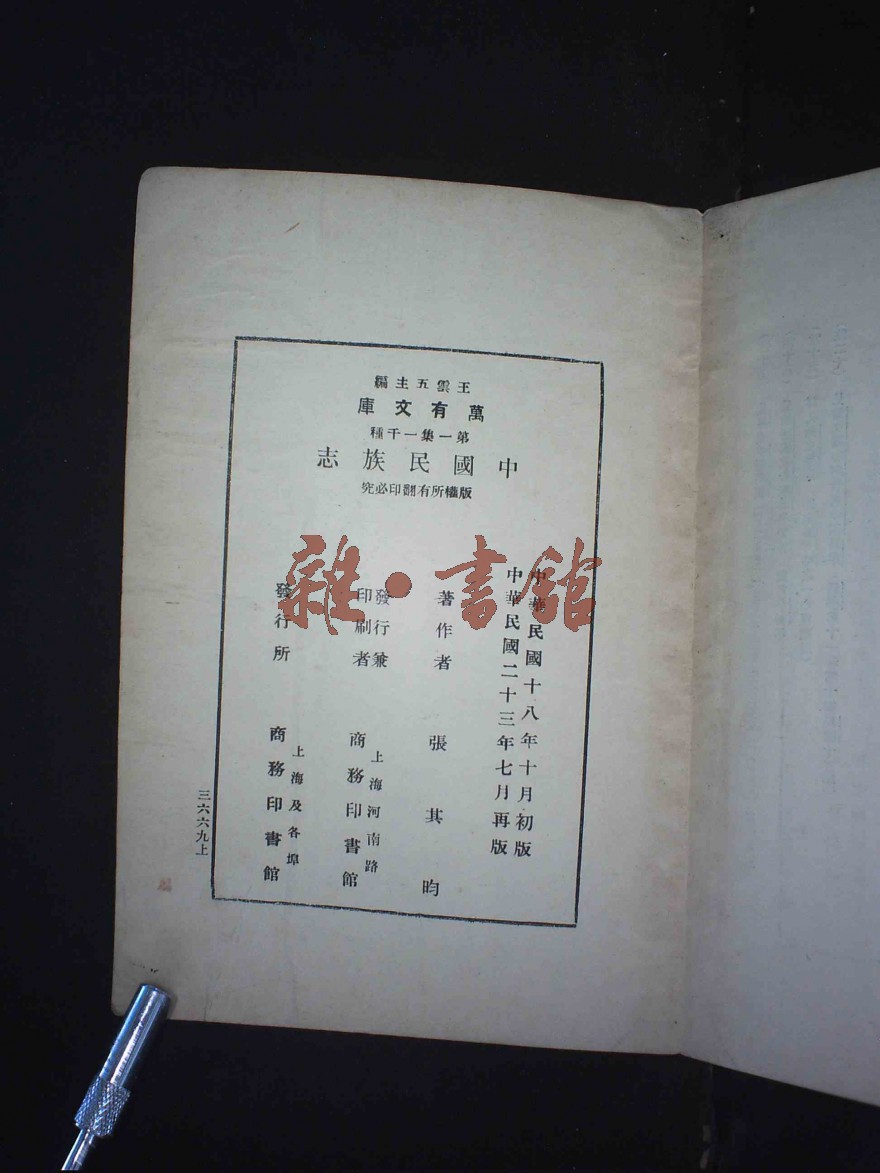 王雲五主編
萬有文庫
第一集一千種
中國民族志
版權所有翻印必究
中華民國十八年十月初版
中華民國二十三年七月再版
著作者 張其昀
發行兼
印刷者
上海河南路
商務印書館
發行所
上海及各埠
商務印書館
三六六九上
雜·書館